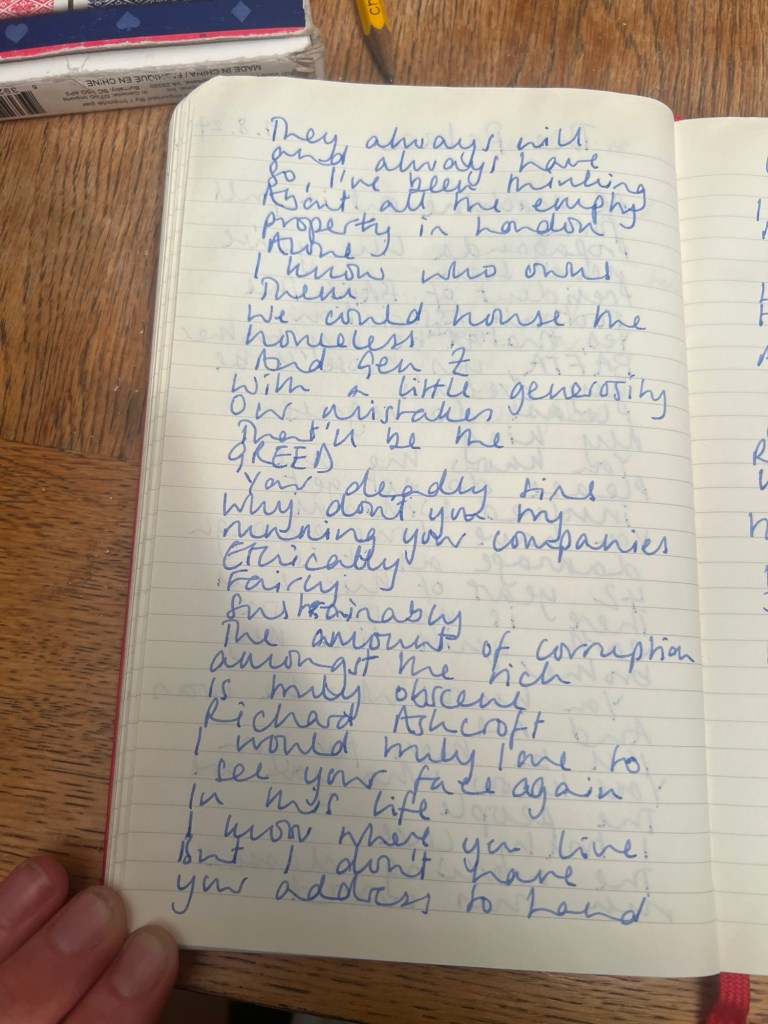 MADE IN CHINA / FABRIQUÉ EN CHINE
They always will
and always have
So, I've been thinking
About all the empty
property in London
Alone
I know who owns
Them
We could house the
homeless
And Gen Z
With a little generosity
Our mistakes
That'll be the
GREED
Your deadly sins
Why don't you try
running your companies
Ethically
Fairly
Sustainably
The amount of corruption
amongst the rich
is truly obscene
Richard Ashcroft
I would truly love to
see your face again
In this life
I know where you live
But I don't have
your address to hand